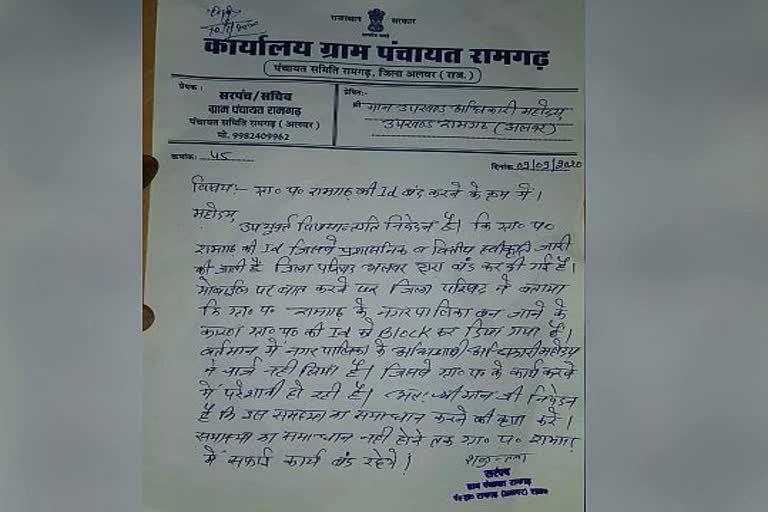 राजस्थान सरकार
कार्यालय ग्राम पंचायत रामगढ़
पंचायत समिति रामगढ़, जिला अलवर (राज.)
प्रेषक :
सरपंच/सचिव
ग्राम पंचायत रामगढ़
पंचायत समिति रामगढ़ (अलवर)
मो. 9982409962
प्रेषित:-
श्री मान उपखण्ड अधिकारी महोदय
उपखण्ड रामगढ़ (अलवर)
क्रमांक: 45
दिनांक 09/09/2020
विषय:- ग्रा० प० रामगढ़ की Id बंद करने के क्रम में।
महोदय,
उपर्युक्त विषयान्तर्गत निवेदन है। कि ग्रा० प०
रामगढ़ की Id जिससे प्रशासनिक व वित्तीय स्वीकृति जारी
की जाती है जिला परिषद अलवर द्वारा बंद कर दी गई है।
मोबाईल पर बात करने पर जिला परिषद ने बताया
कि ग्रा० प० रामगढ़ के नगर पालिका बन जाने के
कारण ग्रा० प० की Id को Block कर दिया गया है।
वर्तमान में नगर पालिका के अधिशाषी अधिकारी महोदय
ने चार्ज नहीं लिया है। जिससे ग्रा० प० के कार्य करने
में परेशानी हो रही है। अतः श्री मान जी निवेदन
है कि इस समस्या का समाधान करने की कृपा करे।
समस्या का समाधान नहीं होने तक ग्रा० प० रामगढ़
में सफाई कार्य बंद रहेगे।
शकुन्तला
सरपंच
ग्राम पंचायत रामगढ़
पं० स० रामगढ़ (अलवर) राज०